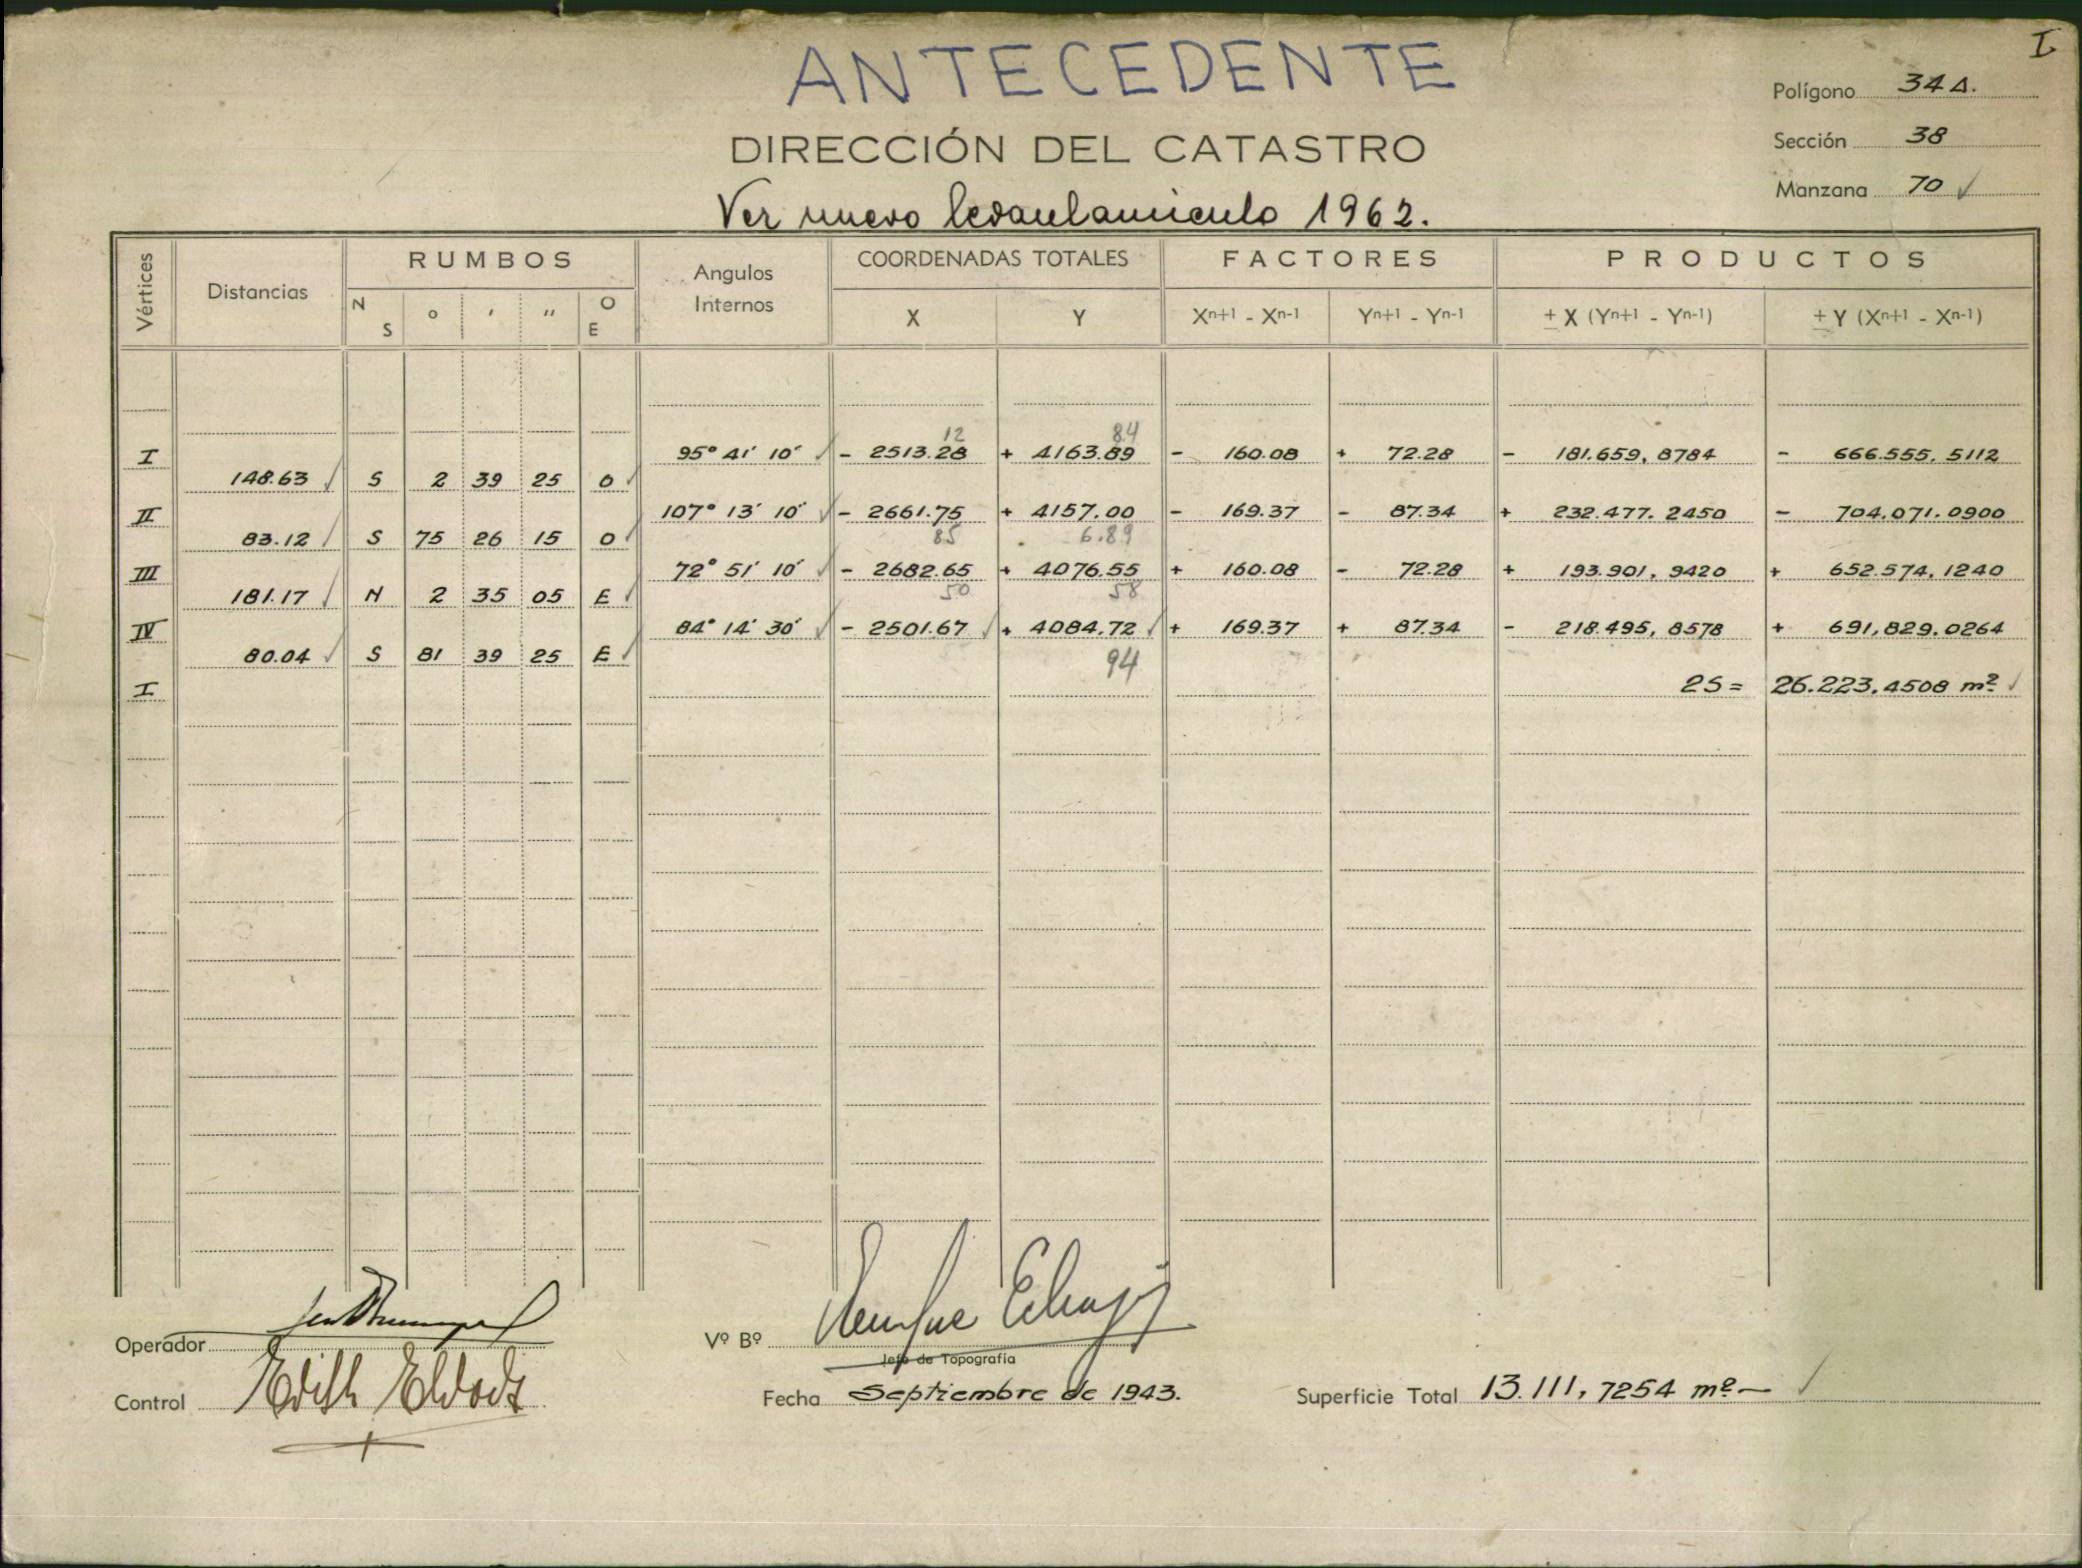 I
ANTECEDENTE
Polígono 34 A.
DIRECCIÓN DEL CATASTRO
Sección 38
Manzana 70 ✓
Ver nuevo levantamiento 1962.
Vértices Distancias RUMBOS Angulos Internos COORDENADAS TOTALES FACTORES PRODUCTOS
N S ° ' " O E X Y Xn+1 - Xn-1 Yn+1 - Yn-1 ± X (Yn+1 - Yn-1) ± Y (Xn+1 - Xn-1)
12 84
I 95° 41' 10" ✓ - 2513.28 + 4163.89 - 160.08 + 72.28 - 181.659,8784 - 666.555.5112
148.63 ✓ S 2 39 25 O ✓
II 107° 13' 10" ✓ - 2661.75 + 4157.00 - 169.37 - 87.34 + 232.477.2450 - 704.071.0900
83.12 ✓ S 75 26 15 O ✓ 85 6.89
III 72° 51' 10" ✓ - 2682.65 + 4076.55 + 160.08 - 72.28 + 193.901,9420 + 652.574,1240
181.17 ✓ N 2 35 05 E ✓ 50 58
IV 84° 14' 30" ✓ - 2501.67 ✓ + 4084.72 ✓ + 169.37 + 87.34 - 218.495,8578 + 691,829.0264
80.04 ✓ S 81 39 25 E ✓ 94
I 2S = 26.223,4508 m² ✓
Operador
Vº Bº
Jefe de Topografía
Control Edith
Fecha Septiembre de 1943.
Superficie Total 13.111,7254 m² — ✓